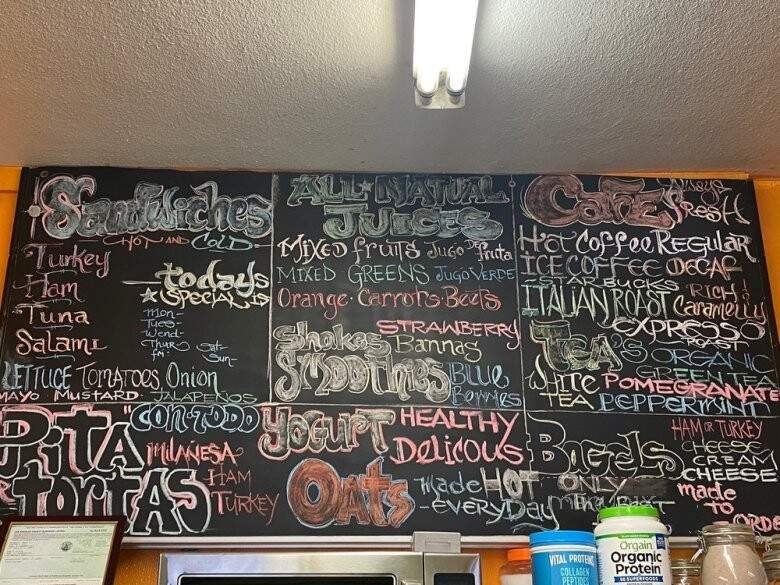 Sandwiches
HOT AND COLD
Turkey
Ham
Tuna
Salami
todays
SPECIAL
Mon-
Tues-
Wend-
Thur
fri-
Sat-
Sun-
LETTUCE TOMATOES, Onion
MAYO MUSTARD JALAPEÑOS
ALL NATUAL
JUICES
MIXED fruits Jugo De fruta
MIXED GREENS JUGO VERDE
Orange · Carrots · Beets
Shakes
Smoothies
STRAWBERRY
Bannas
BLUE
Berries
CAFE Always
FRESH
Hot Coffee REGULAR
ICE COFFEE DECAF
STARBUCKS RICH!
ITALIAN ROAST Caramelly
EXPRESSO
ROAST
TEA'S ORGANIC
GREEN TEA
WHITE POMEGRANATE
TEA PEPPERMINT
PITA "CON-TODO
TORTAS
MILANESA
HAM
TURKEY
YOGURT HEALTHY
Delicous
Oats
Made HOT ONLY
-EVERYDAY
Bagels
HAM OR TURKEY
CHEESE
CREAM
CHEESE
made
to
ORDER
VITAL PROTEINS
COLLAGEN
PEPTIDES
Orgain
Organic
Protein
50 SUPERFOODS